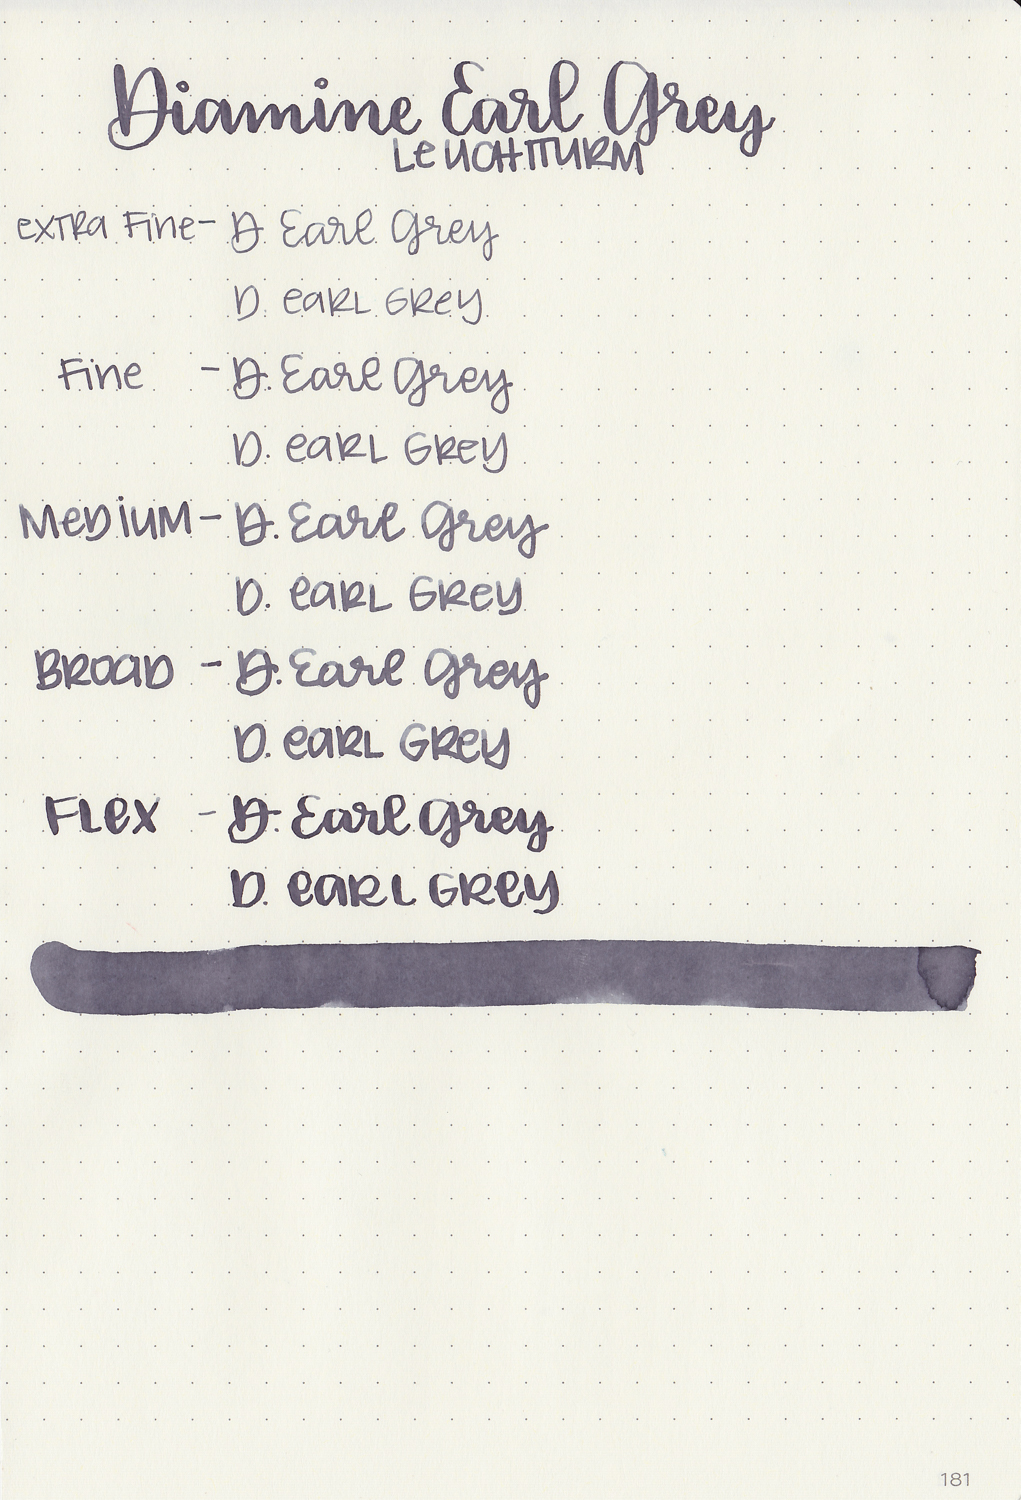 Diamine Earl Grey
LEUCHTTURM
extra Fine - D. Earl Grey
D. Earl Grey
Fine - D. Earl Grey
D. Earl Grey
Medium - D. Earl Grey
D. Earl Grey
Broad - D. Earl Grey
D. Earl Grey
Flex - D. Earl Grey
D. Earl Grey
181